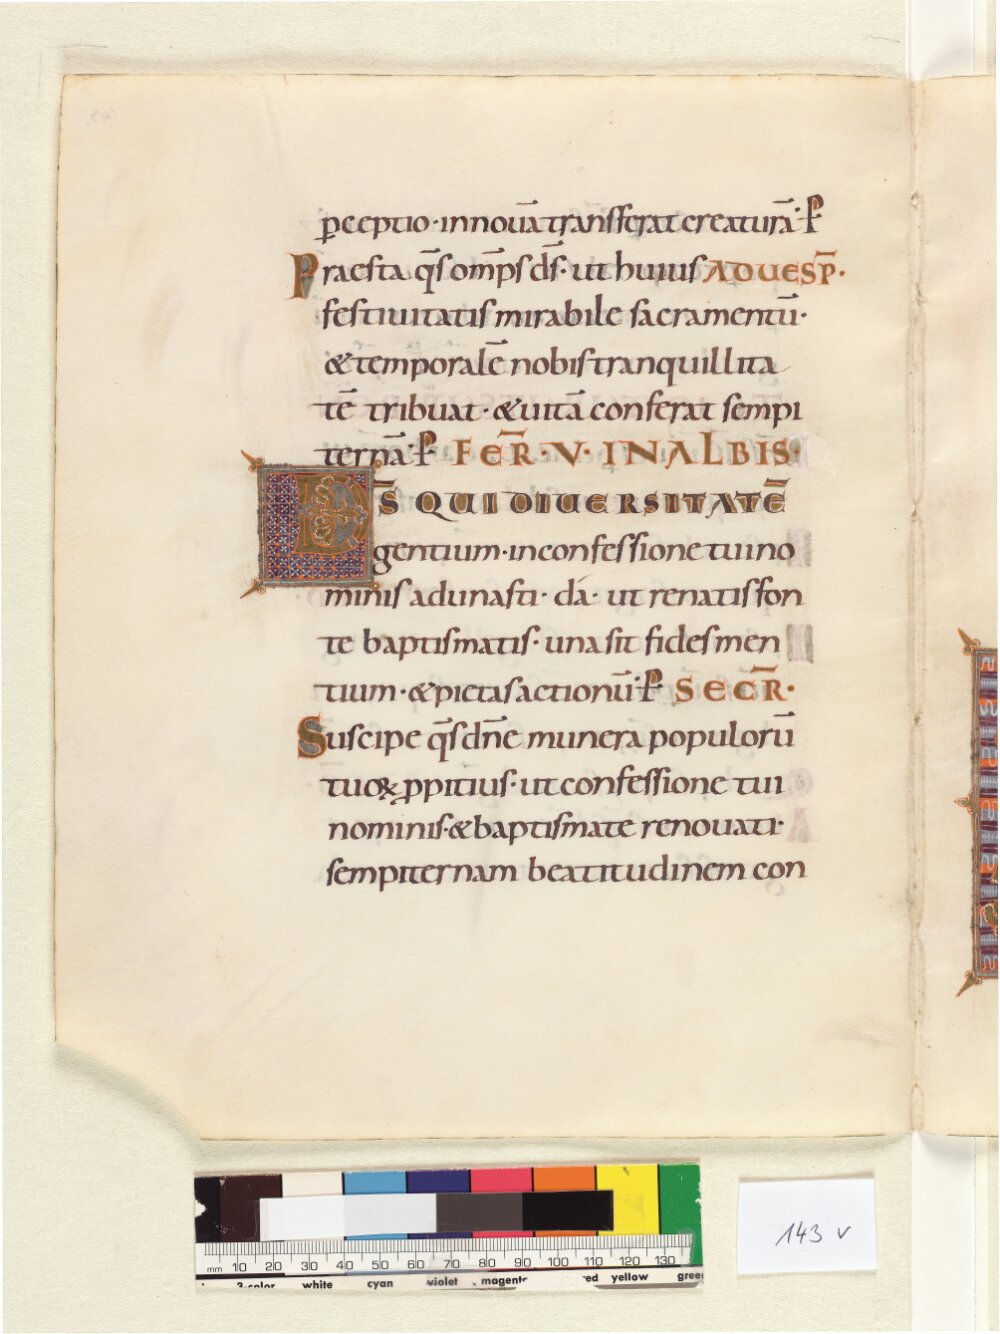 perceptio· in nouā transferat creaturā· P̄
Praesta q̄s om̄ps d̄s· ut huius AD UESP̄·
festiuitatis mirabile sacramentū·
& temporalē nobis tranquillita
tē tribuat· & uitā conferat sempi
ternā· P̄ FER̄· V· IN ALBIS·
D̄S QUI DIUERSITATĒ
gentium· in confessione tui no
minis adunasti· dá· ut renatis fon
te baptismatis· una sit fides men
tium· & pietas actionū· P̄ SECR̄·
Suscipe q̄s dn̄e munera populorū
tuoꝝ ꝓpitius· ut confessione tui
nominis· & baptismate renouati·
sempiternam beatitudinem con
143 v
mm 10 20 30 40 50 60 70 80 90 100 110 120 130
3-color white cyan violet magenta red yellow green